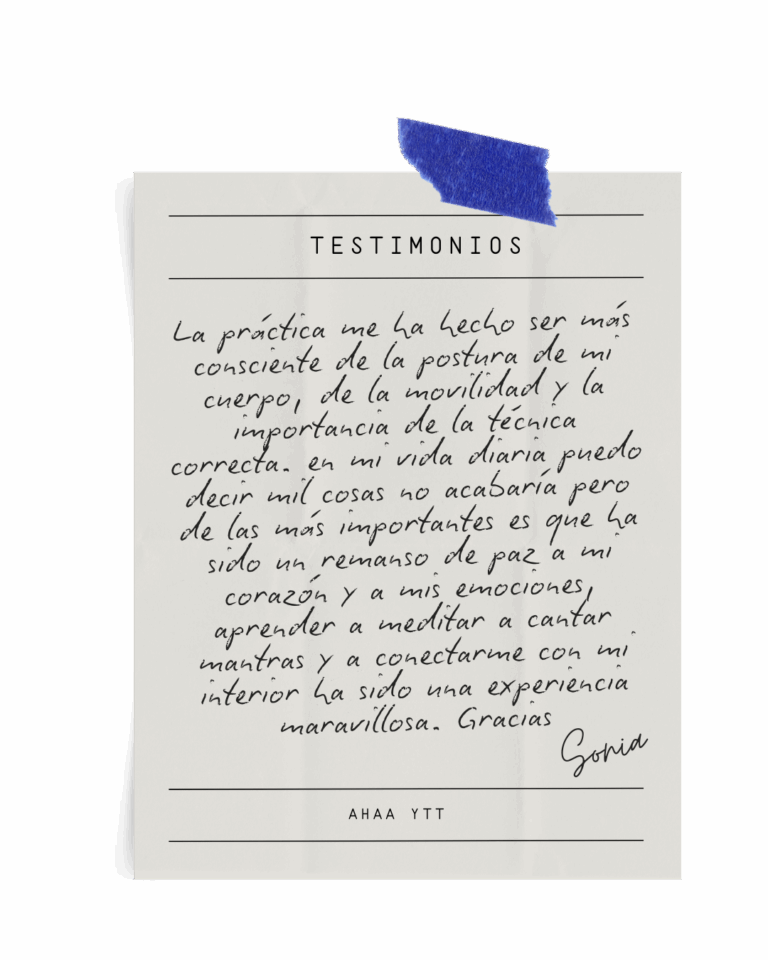 TESTIMONIOS
La práctica me ha hecho ser más
consciente de la postura de mi
cuerpo, de la movilidad y la
importancia de la técnica
correcta. en mi vida diaria puedo
decir mil cosas no acabaría pero
de las más importantes es que ha
sido un remanso de paz a mi
corazón y a mis emociones,
aprender a meditar a cantar
mantras y a conectarme con mi
interior ha sido una experiencia
maravillosa. Gracias
Sonia
AHAA YTT